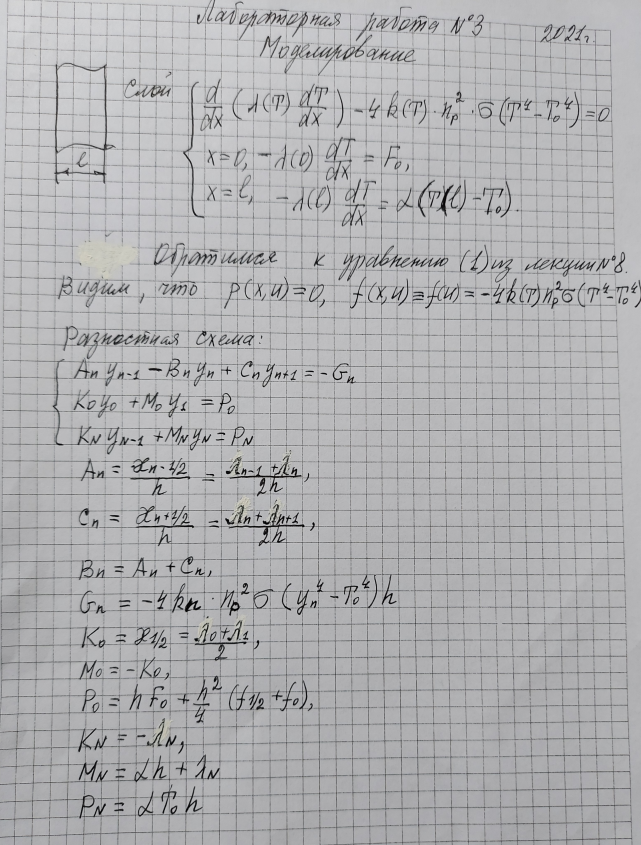 Лабораторная работа №3 2021г.
Моделирование
Слой
d/dx (λ(T) dT/dx) - 4k(T)·nₚ²·σ(T⁴-T₀⁴)=0
x=0, -λ(0) dT/dx = F₀,
x=l, -λ(l) dT/dx = α(T(l)-T₀).
l
Обратимся к уравнению (1) из лекции №8.
Видим, что p(x,u)=0, f(x,u)≡f(u)=-4k(T)nₚ²σ(T⁴-T₀⁴)
Разностная схема:
Aₙyₙ₋₁ - Bₙyₙ + Cₙyₙ₊₁ = -Gₙ
K₀y₀ + M₀y₁ = P₀
K_N y_N-1 + M_N y_N = P_N
Aₙ = ϰn-1/2 / h = (λn-1 + λn) / 2h,
Cₙ = ϰn+1/2 / h = (λn + λn+1) / 2h,
Bₙ = Aₙ + Cₙ,
Gₙ = -4kₙ·nₚ²σ(yₙ⁴-T₀⁴)h
K₀ = ϰ1/2 = (λ₀+λ₁) / 2,
M₀ = -K₀,
P₀ = hF₀ + h²/4 (f1/2 + f₀),
K_N = -λ_N,
M_N = αh + λ_N
P_N = αT₀h